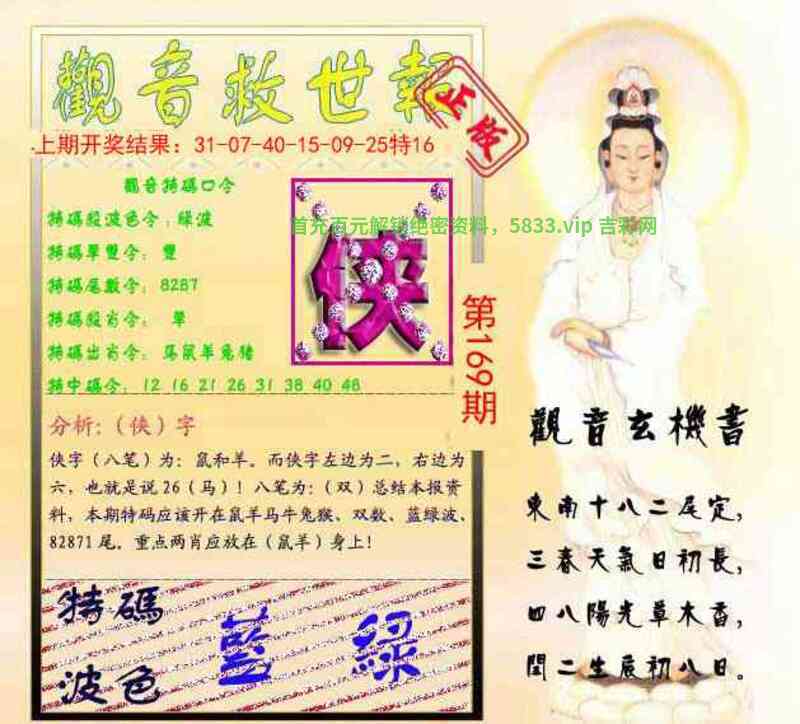 觀音救世報
正版
上期开奖结果：31-07-40-15-09-25特16
觀音特碼口令
特碼段波色令：绿波
特碼單雙令：雙
特碼尾數令：8287
特碼段肖令：單
特碼出肖令：马鼠羊兔猪
特中碼令：12 16 21 26 31 38 40 48
俠
首充百元解锁绝密资料，5833.vip 吉彩网
第169期
分析:（侠）字
侠字（八笔）为：鼠和羊。而侠字左边为二，右边为
六，也就是说26（马）！八笔为:（双）总结本报资
料，本期特码应该开在鼠羊马牛兔猴、双数、蓝绿波、
82871尾。重点两肖应放在（鼠羊）身上！
特碼
波色
藍 綠
觀音玄機書
東南十八二尾定，
三春天氣日初長，
四八陽光草木香，
閏二生辰初八日。